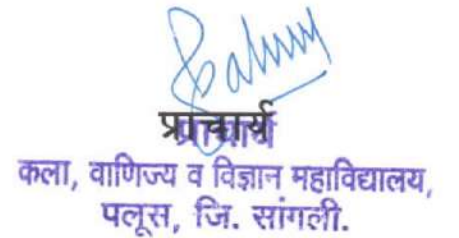 प्राचार्य
प्राचार्य
कला, वाणिज्य व विज्ञान महाविद्यालय,
पलूस, जि. सांगली.